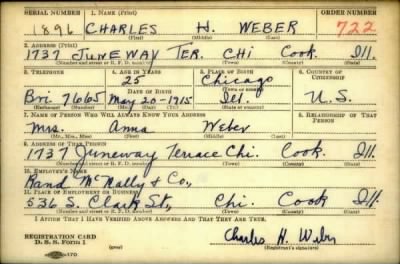 SERIAL NUMBER 1. NAME (Print) ORDER NUMBER
1896 CHARLES H. WEBER 722
(First) (Middle) (Last)
2. ADDRESS (Print)
1737 JUNEWAY TER. CHI Cook. Ill.
(Number and street or R. F. D. number) (Town) (County) (State)
3. TELEPHONE 4. AGE IN YEARS 5. PLACE OF BIRTH 6. COUNTRY OF CITIZENSHIP
25 Chicago
DATE OF BIRTH (Town or county)
Bri 7665 May 20-1915 Ill. U.S.
(Exchange) (Number) (Mo.) (Day) (Yr.) (State or country)
7. NAME OF PERSON WHO WILL ALWAYS KNOW YOUR ADDRESS 8. RELATIONSHIP OF THAT PERSON
Mrs. Anna Weber
(Mr., Mrs., Miss) (First) (Middle) (Last)
9. ADDRESS OF THAT PERSON
1737 Juneway Terrace Chi. Cook. Ill.
(Number and street or R. F. D. number) (Town) (County) (State)
10. EMPLOYER'S NAME
Rand McNally & Co.,
11. PLACE OF EMPLOYMENT OR BUSINESS
536 S. Clark St., Chi. Cook Ill.
(Number and street or R. F. D. number) (Town) (County) (State)
I AFFIRM THAT I HAVE VERIFIED ABOVE ANSWERS AND THAT THEY ARE TRUE.
REGISTRATION CARD
D. S. S. Form 1 (over) Charles H. Weber
(Registrant's signature)